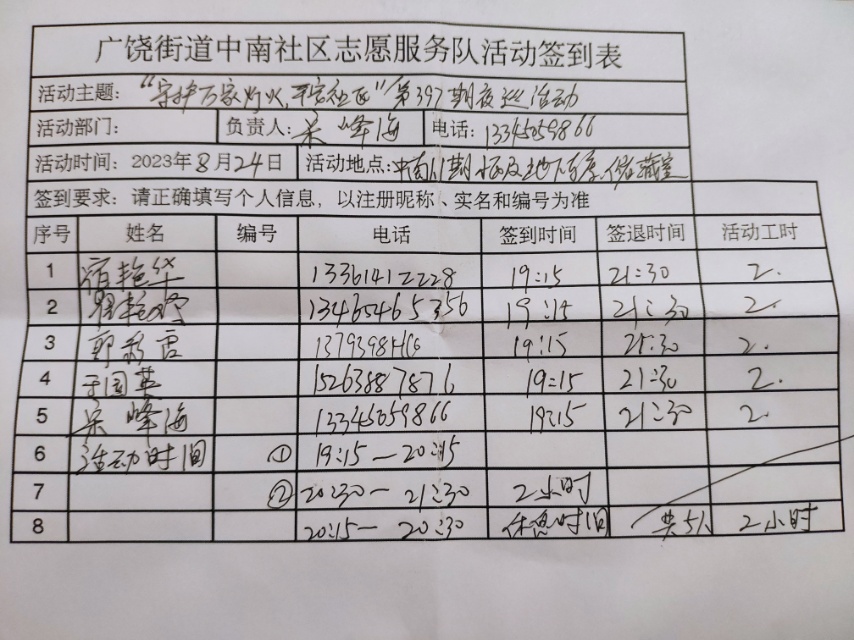 广饶街道中南社区志愿服务队活动签到表
活动主题：“守护万家灯火，平安社区”第397期夜巡活动
活动部门： 负责人：吴峰海 电话：13345059866
活动时间：2023年8月24日 活动地点：中南 期 地下车库、储藏室
签到要求：请正确填写个人信息，以注册昵称、实名和编号为准
序号 姓名 编号 电话 签到时间 签退时间 活动工时
1 宿艳华 13361412228 19:15 21:30 2.
2 13465465356 19:15 21:30 2.
3 郭彩霞 19:15 21:30 2.
4 于国英 15263887876 19:15 21:30 2.
5 吴峰海 13345059866 19:15 21:30 2.
6 活动时间 ① 19:15—20:15
7 ② 20:30—21:30 2小时
8 20:15—20:30 休息时间 共5人 2小时